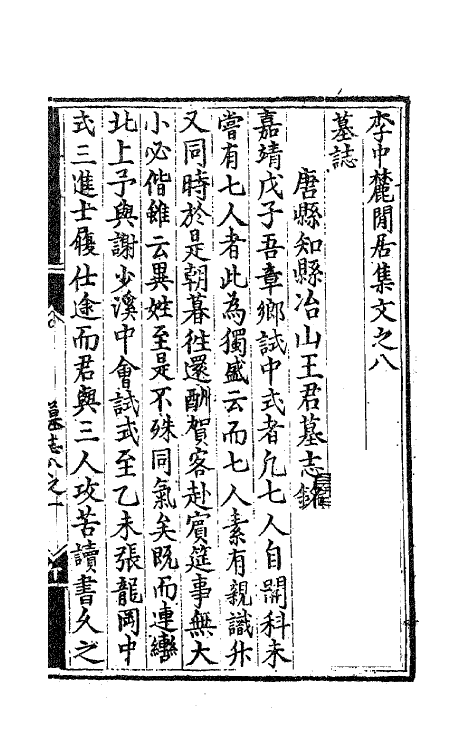 李中麓閒居集文之八
墓誌
唐縣知縣冶山王君墓志銘
嘉靖戊子吾章鄉試中式者凡七人自開科未
嘗有七人者此為獨盛云而七人素有親識升
又同時於是朝暮徃還酬賀客赴賓筵事無大
小必偕雖云異姓至是不殊同氣矣既而連轡
北上予與謝少溪中會試式至乙未張龍岡中
式三進士履仕途而君與三人攻苦讀書久之
墓志八之一